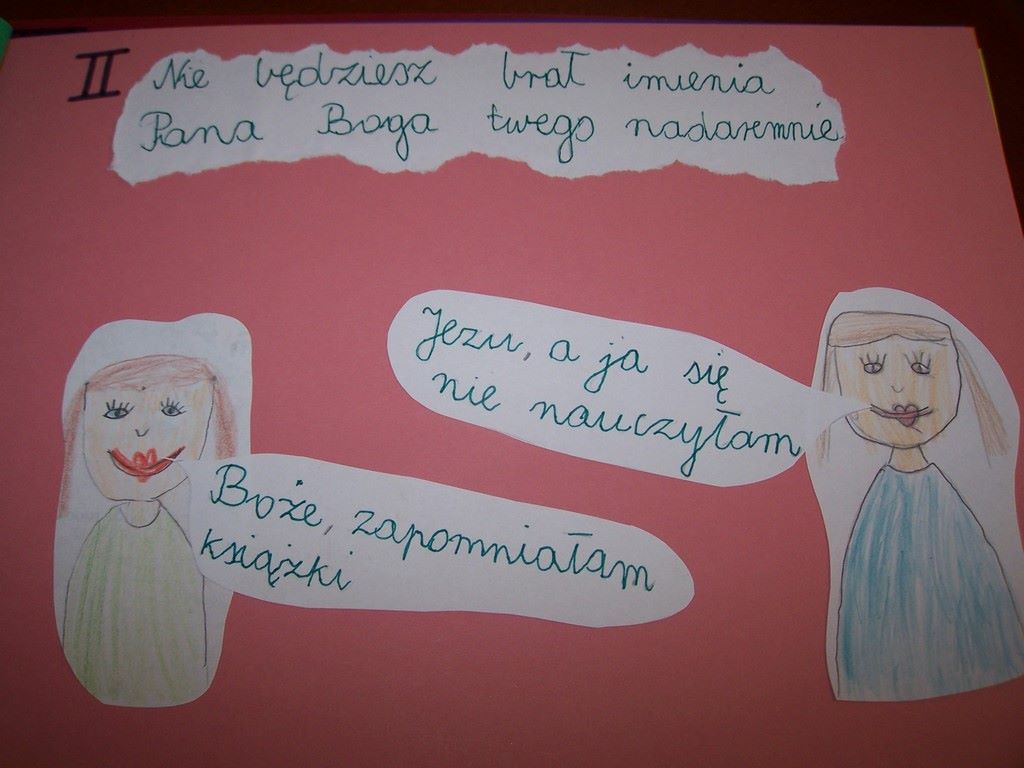 II Nie będziesz brał imienia
Pana Boga twego nadaremnie
Jezu, a ja się
nie nauczyłam
Boże, zapomniałam
książki